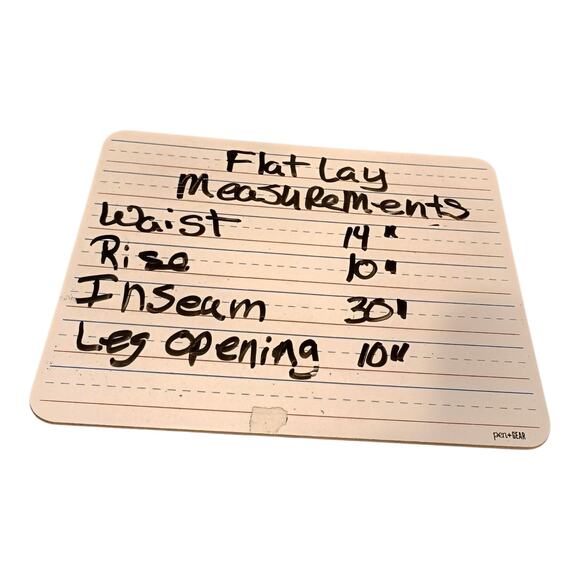 Flat Lay
Measurements
Waist 14"
Rise 10"
Inseam 30"
Leg opening 10"
pen+GEAR